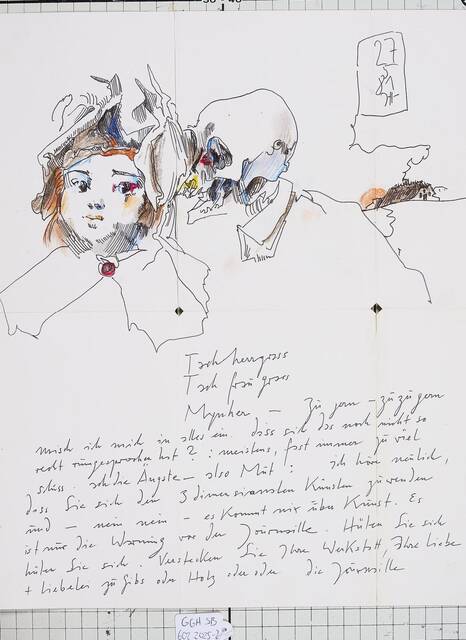 27
81
Tach herrgrass
Tach fraugrass
Mynher — Zu gern — zuzugern
misch ich mich in alles ein. dass sich das noch nicht so
recht rumgesprochen hat? : meistens, fast immer zu viel
Ängste — also Mut! ich höre neulich,
dass Sie sich den 3 dimensionalen Künsten zuwenden
und — nein nein — es kommt nix über Kunst. Es
ist nur die Warnung vor der Journaille. Hüten Sie sich
hüten Sie sich. Verstecken Sie Ihre Werkstatt, Ihre Liebe
+ Liebelei zu Gibs oder Holz oder oder die Journaille
GGH SB